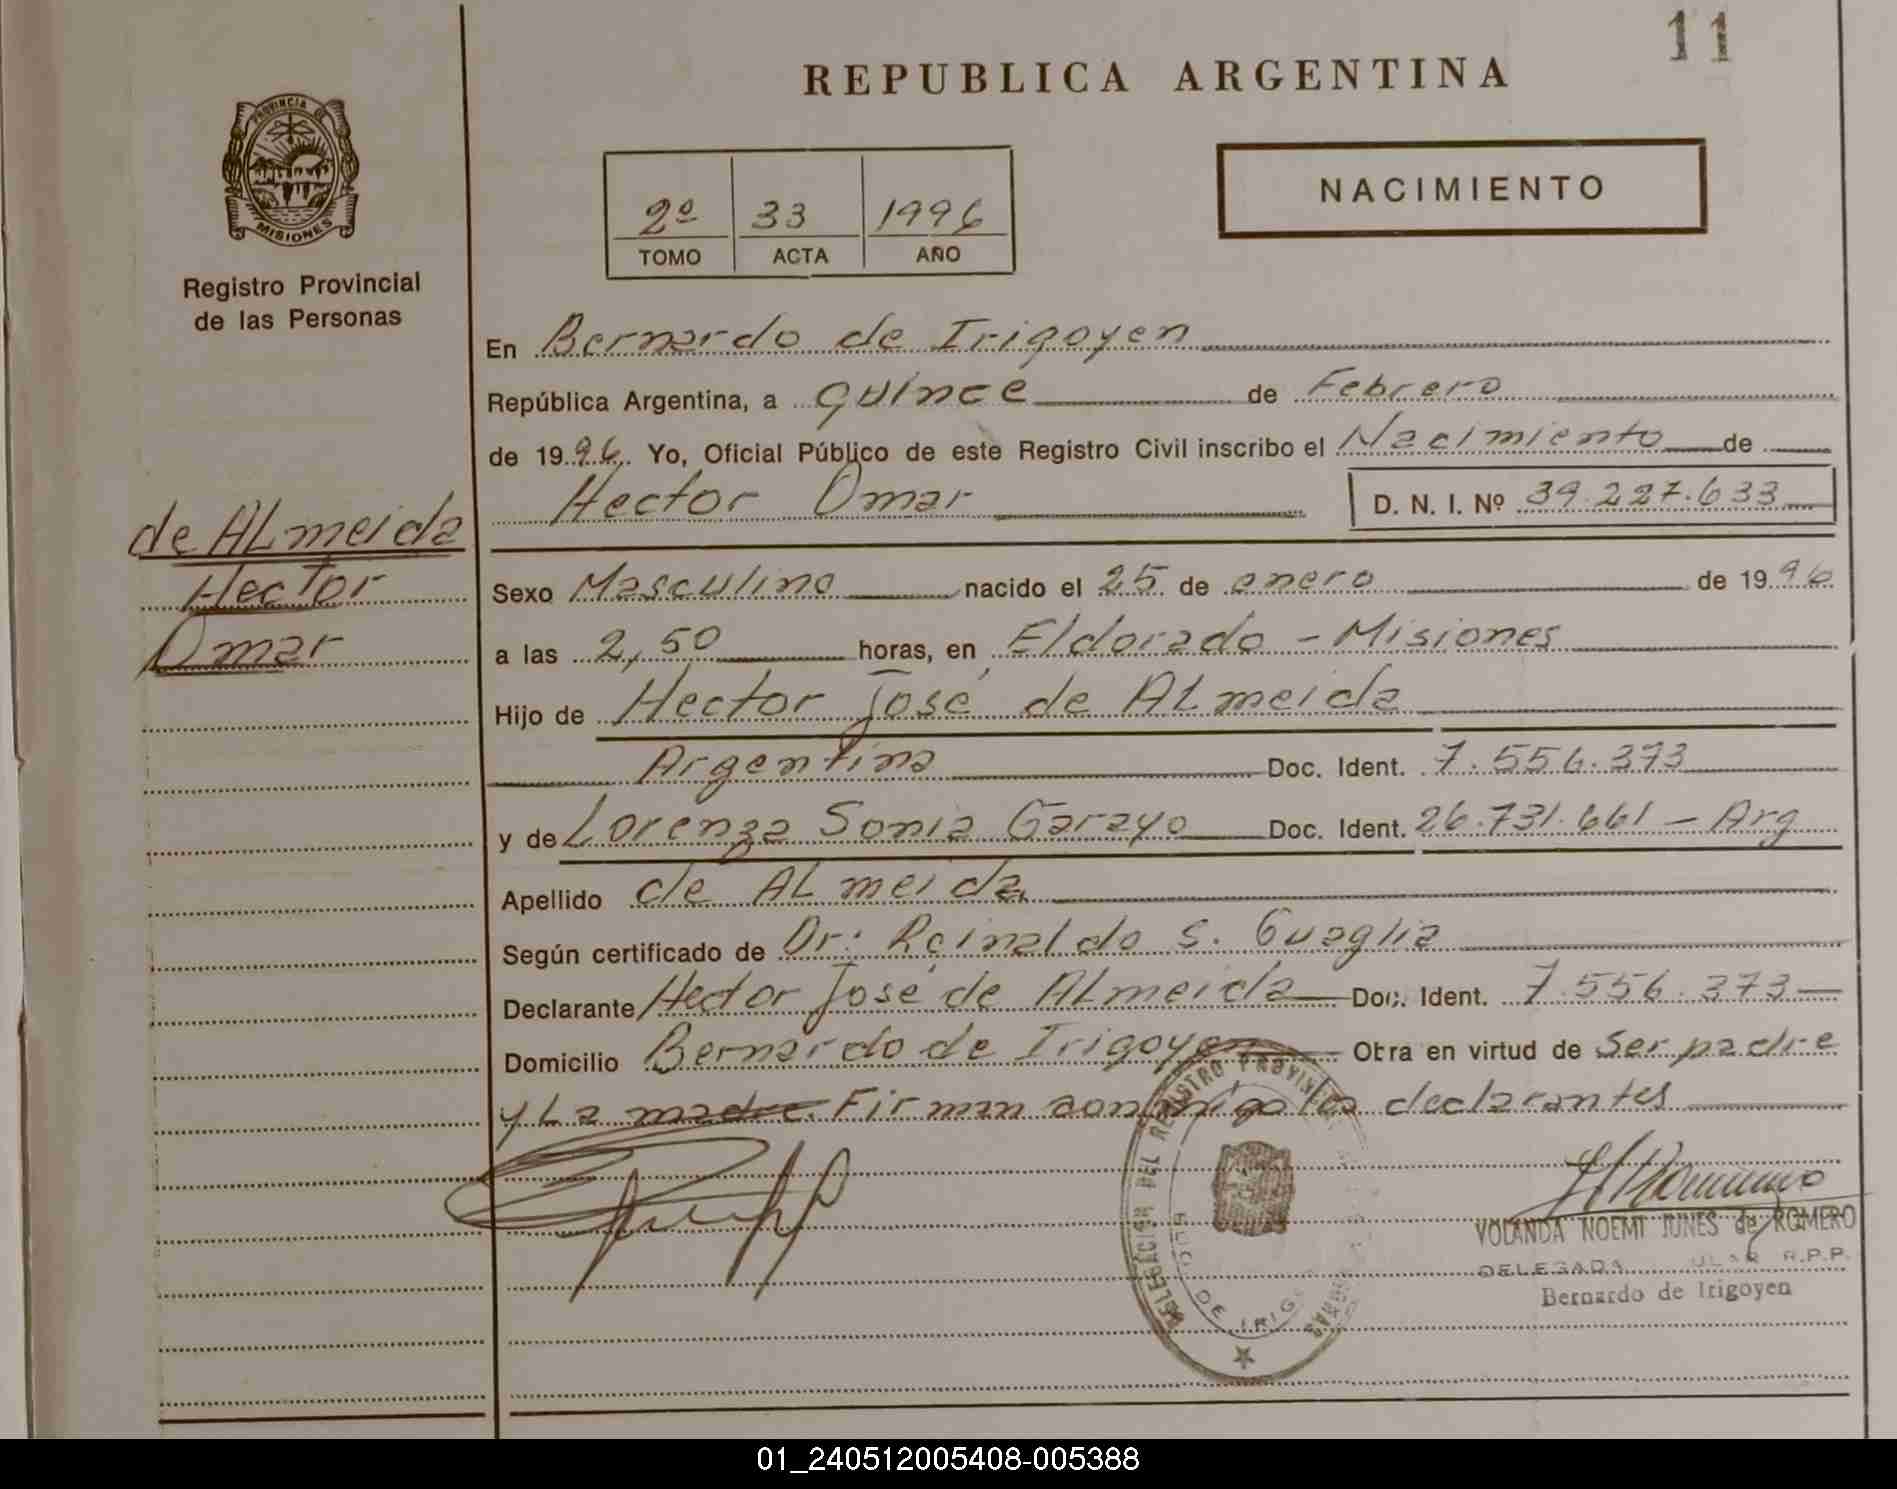 11
REPUBLICA ARGENTINA
PROVINCIA DE
MISIONES
Registro Provincial
de las Personas
NACIMIENTO
2º 33 1996
TOMO ACTA AÑO
En Bernardo de Irigoyen
República Argentina, a quince de Febrero
de 1996 Yo, Oficial Público de este Registro Civil inscribo el Nacimiento de
Hector Omar D. N. I. Nº 39.227.633
de ALmeida
Hector
Omar
Sexo Masculino nacido el 25 de enero de 1996
a las 2,50 horas, en Eldorado - Misiones
Hijo de Hector José de ALmeida
Argentina Doc. Ident. 7.556.373
y de Lorenza Sonia Garayo Doc. Ident. 26.731.661 - Arg
Apellido de ALmeida
Según certificado de Dr: Reinaldo S. Guaglia
Declarante Hector José de ALmeida Doc. Ident. 7.556.373
Domicilio Bernardo de Irigoyen Obra en virtud de Ser padre
y La madre. Firman conmigo los declarantes
DELEGACION DEL REGISTRO PROVINCIAL
DE IRIG
YOLANDA NOEMI JUNES de ROMERO
DELEGADA R.P.P.
Bernardo de Irigoyen
01_240512005408-005388